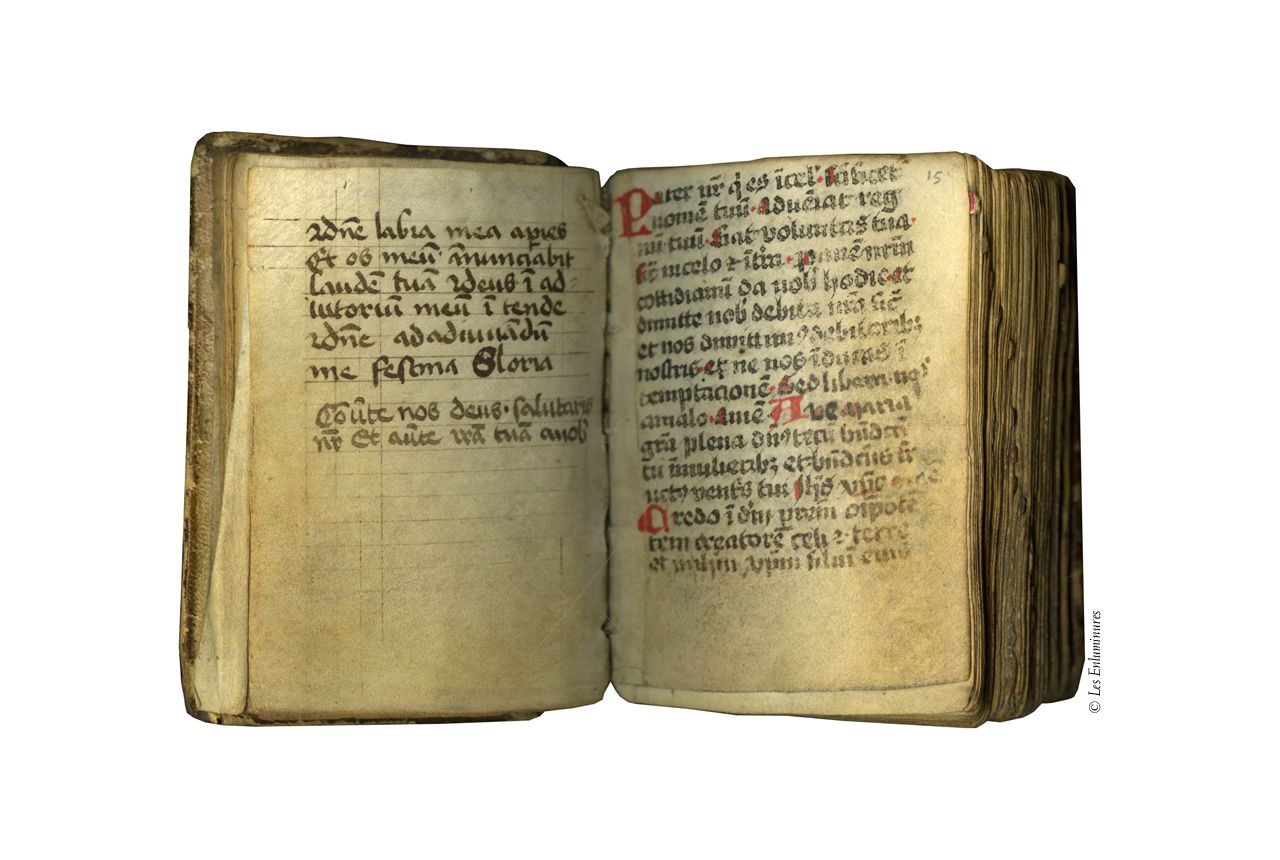 Dn̄e labia mea aꝑies
Et os meū ānunciabit
laudē tuā Deus ī ad-
iutoriū meū ītende
Dn̄e ad adiuuādū
me festina Gloria
Cōūte nos deus salutaris
nr̄ Et aūte irā tuā a nob̄
15
Pater nr̄ qͥ es ī cel̓
nomē tuū adueniat reg
nū tuū fiat voluntas tua
ī celo ⁊ ī panē nr̄m
cottidianū da nob̓ hodie et
dimitte nob̓ debita nr̄a sic̄
et nos debitoribꝫ
nostris et ne nos īducas ī
temptacionē Sed libera noˢ
a malo Amē Aue maria
grā plena dn̄s tecū bn̄dcā
tu ī mulieribꝫ et bn̄dcūs fr
uctꝰ ventris tui
Credo ī dm̄ prēm oīpotē
tem creatorē celi ⁊ terre
et filiū eius
© Les Enluminures